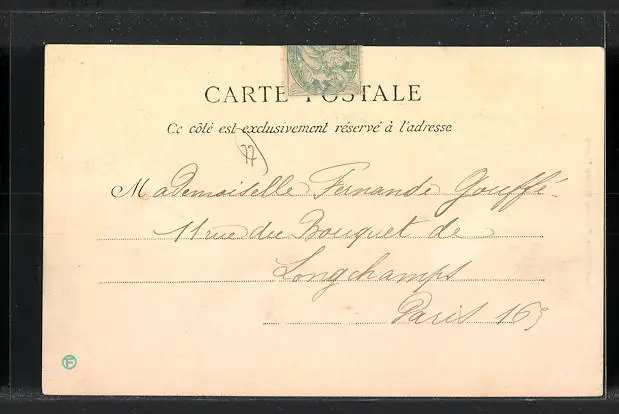 CARTE POSTALE
Ce côté est exclusivement réservé à l'adresse
77
Mademoiselle Fernande Gouffé
11 rue du Bouquet de
Longchamps
Paris 16e
F